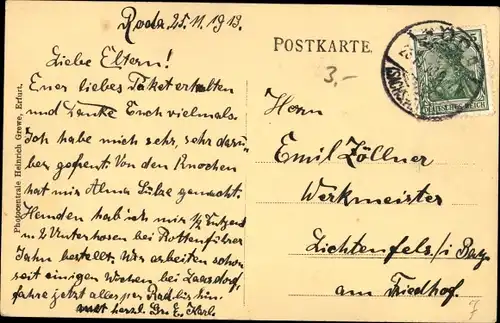 Roda 25.11.1913.
Liebe Eltern!
Euer liebes Paket erhalten
und Danke Euch vielmals.
Ich habe mich sehr, sehr darü-
ber gefreut. Von den Knochen
hat mir Alma Sülze gemacht.
Hemden hab ich mir 1/2 Dutzend
u. 2 Unterhosen bei Rottenführer
Jahn bestellt. Wir arbeiten schon
seit einigen Wochen bei Laasdorf,
fahre jetzt alles per Rad bis hin.
herzl. Gr. E. Karl
Photocentrale Heinrich Grewe, Erfurt.
POSTKARTE.
3,-
DEUTSCHES REICH
Herrn
Emil Zöllner
Werkmeister
Lichtenfels/i Bay.
am Friedhof.